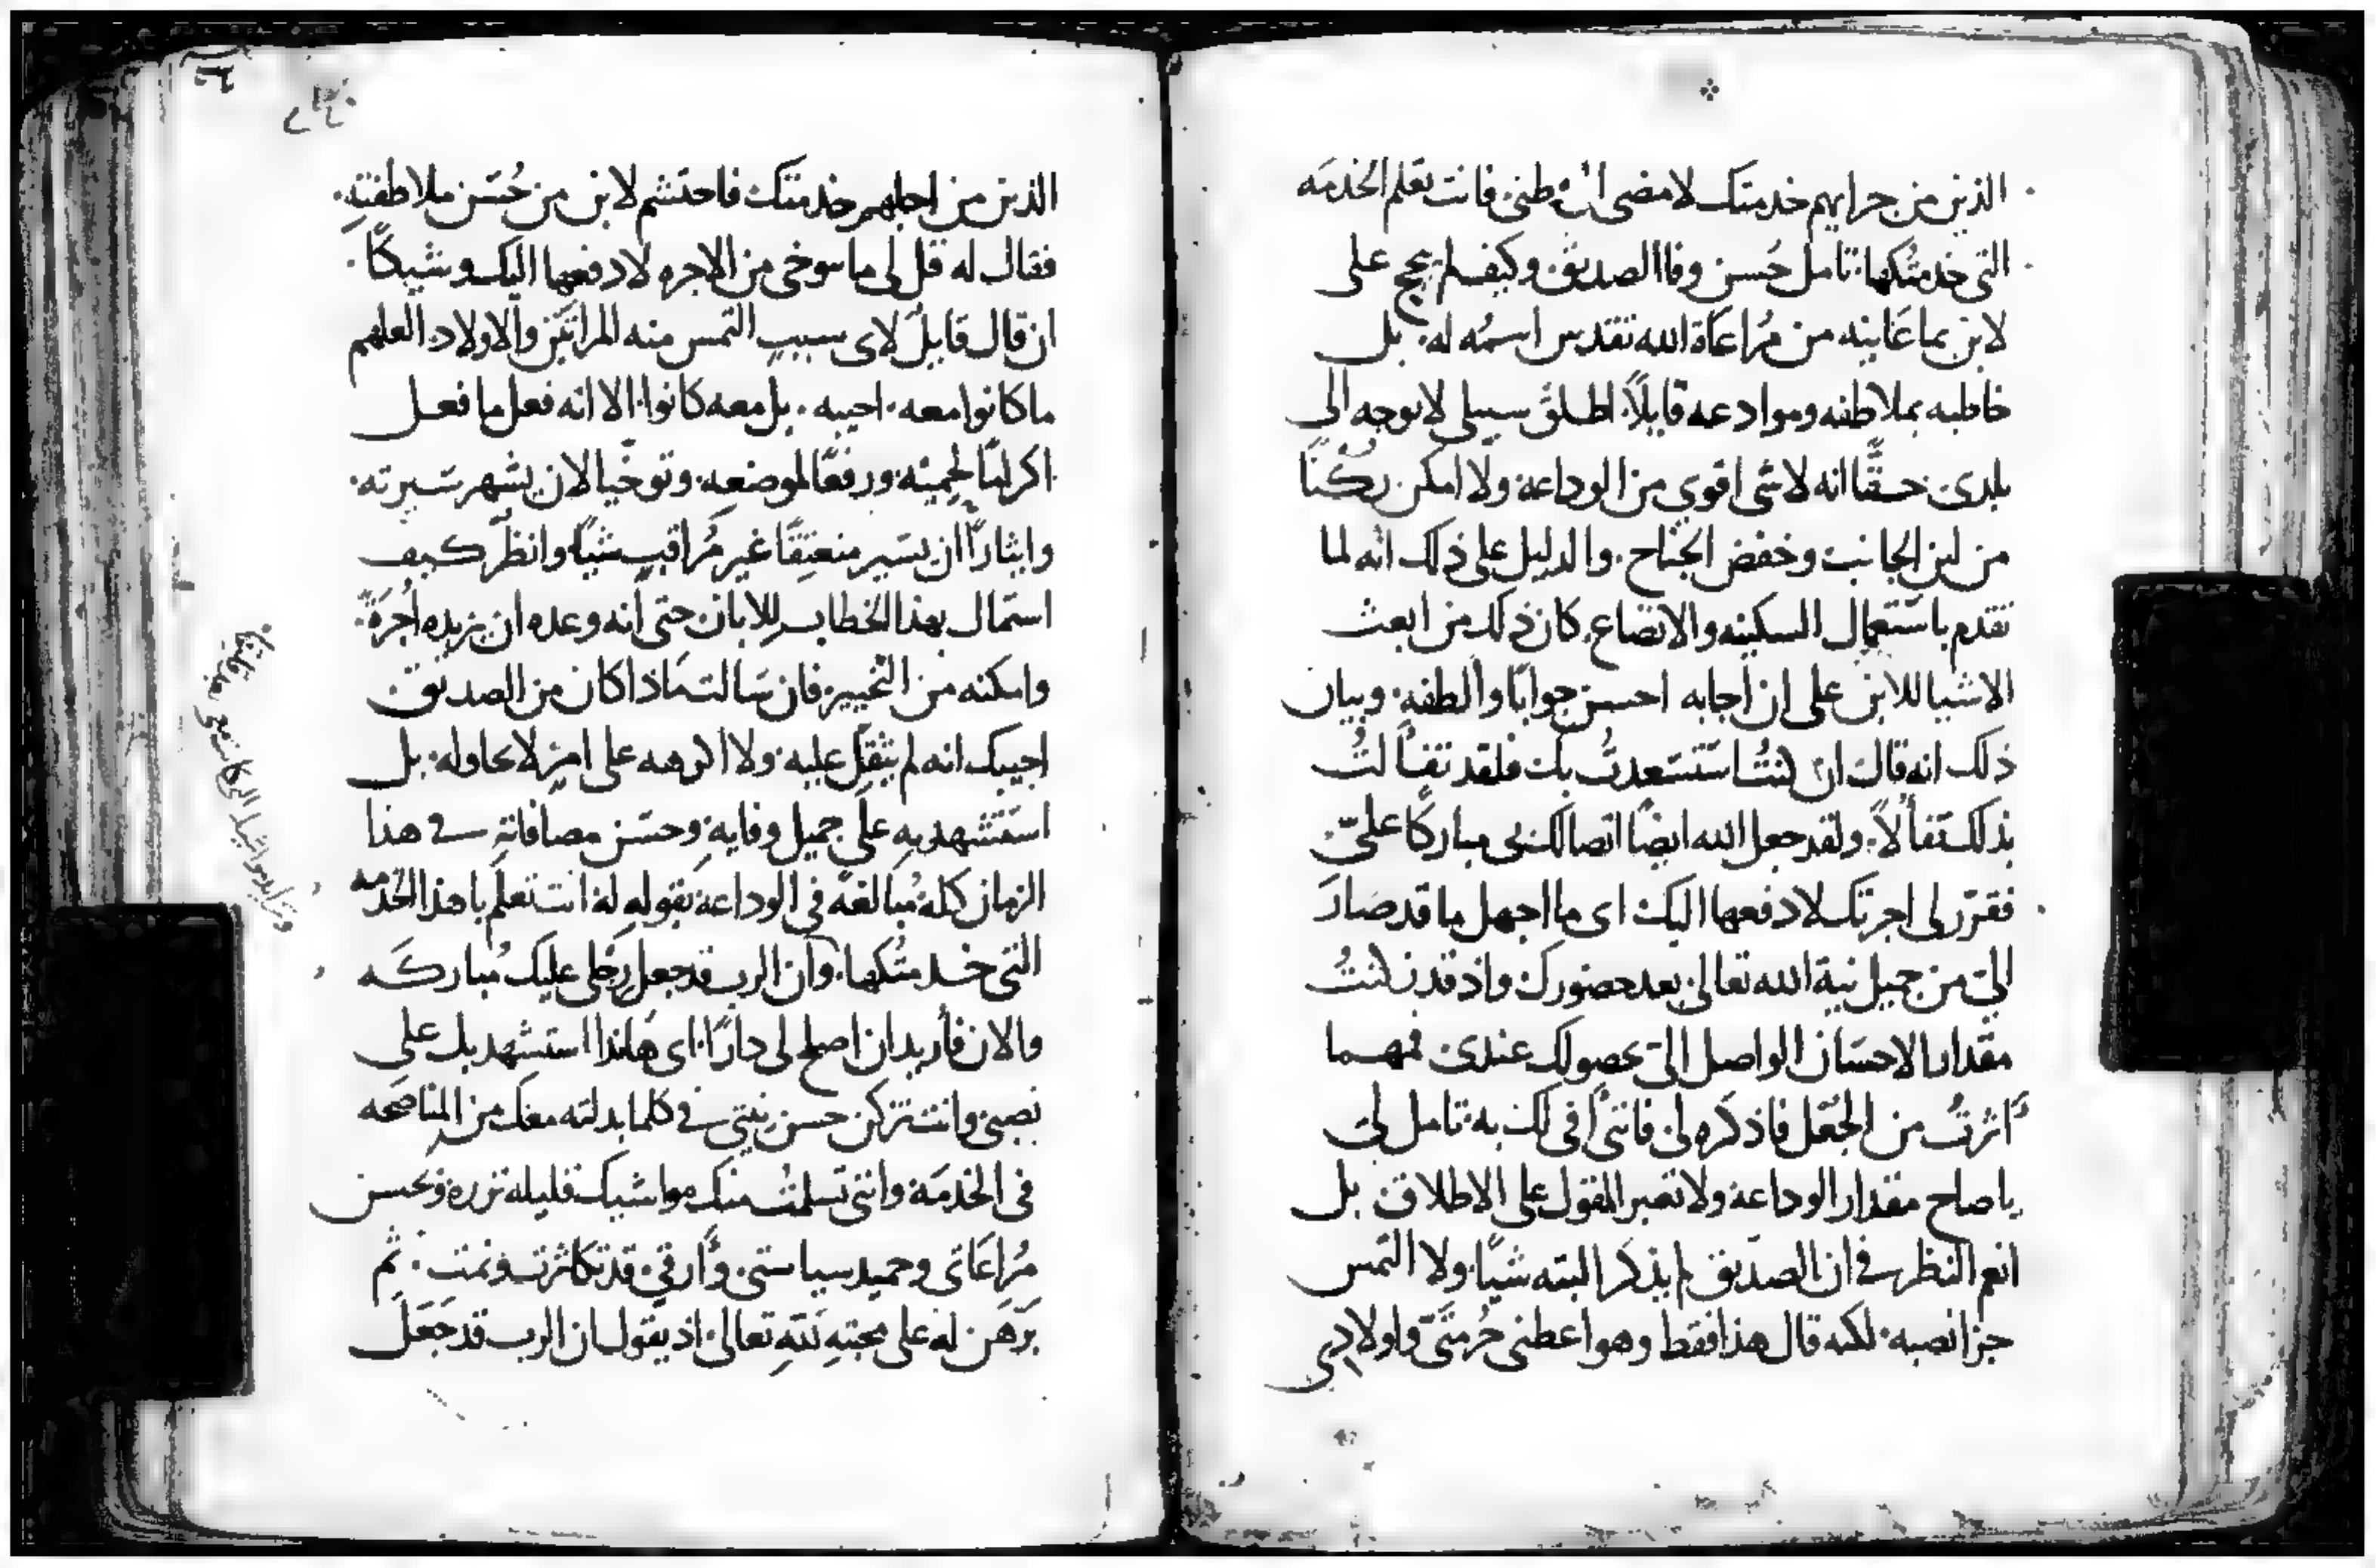 الذين من جرايهم خدمتك لامضي الى وطني فانت تعلم الخدمه
التي خدمتكها. تامل حُسن وفا الصديق وكيف لم يحج على
لابن بما عَاينه من مُراعَاة الله تقدس اسمُه له. بل
خاطبه بملاطفه وموادعه قايلاً. اطلق سبيلي لاتوجه الي
بلدي حقًّا انه لاشي اقوي من الوداعة ولا امكن ركنًا
من لين الجانب وخفض الجناح. والدليل على ذلك انه لما
تقدم باستعمال السكينه والاتضاع كان ذلك من ابعث
الاشيا للابن على ان اجابه احسن جوابًا والطفه. وبيان
ذلك انه قال ان كنتُ استسعدتُ بك فلقد تفألتُ
بذلك تفألاً. ولقد جعل الله ايضًا اتصالك بي مباركًا عليّ
فقرّر لي اجرتك لادفعها اليك اي ما اجهل ما قد صَارَ
اليّ من جميل نية الله تعالي بعد حضورك واذ قد زكنتُ
مقدار الاحسَان الواصل اليّ بحصولك عندي فمهما
آثرتُ من الجُعَل فاذكره لي فانني افي لك به. تامل لي
ياصاح مقدار الوداعة ولا تعبر القول على الاطلاق بل
انعم النظر في ان الصدّيق لم يذكر البته شيًا. ولا التمس
جزا نصبه. لكنه قال هذا فقط وهو اعطني حُرمَتيّ واولادي
الذين من اجلهم خدمتك فاحتشم لابن من حُسَن ملاطفتهِ.
فقال له قل لي ما توخي من الاجره لادفعها اليك وشيكًا.
ان قال قايلٌ لاي سببٍ التمس منه المراتَين والاولاد العلهم
ماكانوا معه. اجيبه. بل معه كانوا. الا انه فعل ما فعل
اكرامًا لحميّه ورفعًا لموضعه. وتوخّيا لان يشهر سَيرته.
وايثارًا ان يسَير منعتِقًا غير مُراقبٍ شيًا وانظر كيف
استمال بهذا الخطاب للابان حتى انه وعده ان يزيده أجرَةً.
وامكنه من التخيير. فان سَالت مَاذا كان من الصديق
اجيبك انه لم يثقل عليه. ولا اكرهه على امرٍ لا يحاوله. بل
استَشهد بهِ على جميل وفايهِ وحسَن مصافاتهِ في هذا
الزمان كله مُبالغةً في الوداعة بقولهِ له انت تعلم ياهذا الخدمه
التي خدمتُكها. وان الرب قد جعل رِجُلي عليك مُباركه
والان فأريد ان اصلح لي دارًا. اي هَانذا استشهد بك علي
نصبي وانت تزكن حسن نيتي في كلما بدلته معك من المناصَحه
في الخدمَة وانني تسلمتُ منك مواشيك قليله نزره وبحسن
مُراعَاتي وحميد سياستي. وَأرقي. قد تكاثرت ونمت. ثم
بَرهَن له على محبتهِ للهِ تعالي. اذ يقول ان الرب قد جَعَل